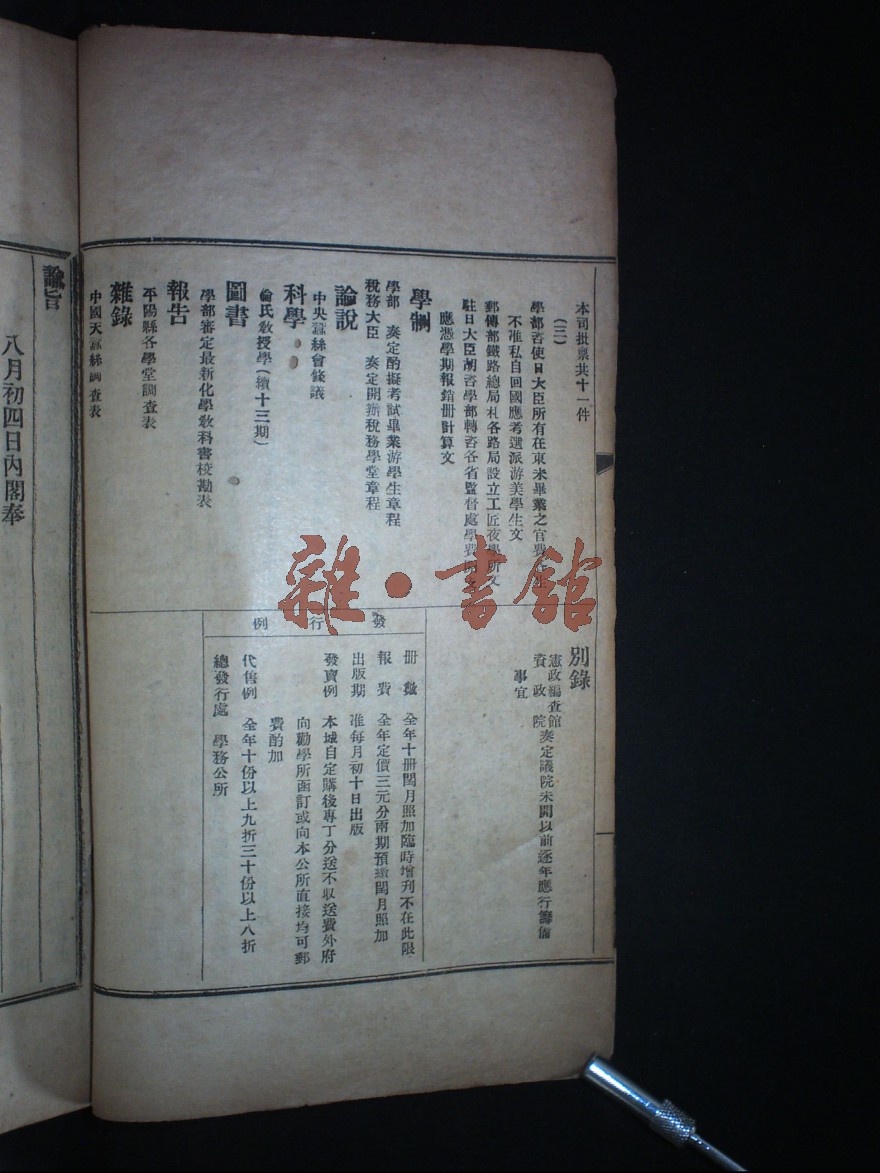 本司批禀共十一件
(三)
學部咨使日大臣所有在東未畢業之官費
不准私自回國應考選派游美學生文
郵傳部鐵路總局札各路局設立工匠夜學所文
駐日大臣胡咨學部轉咨各省監督處學費
應憑學期報銷册計算文
學制
學部 奏定酌擬考試畢業游學生章程
稅務大臣 奏定開辦稅務學堂章程
論說
中央蠶絲會餘議
科學
倫氏教授學(續十三期)
圖書
學部審定最新化學教科書校勘表
報告
平陽縣各學堂調查表
雜錄
中國天蠶絲調查表
別錄
憲政編查館資政院奏定議院未開以前逐年應行籌備
事宜
發行例
册數 全年十册閏月照加臨時增刊不在此限
報費 全年定價三元分兩期預繳閏月照加
出版期 准每月初十日出版
發賣例 本城自定購後專丁分送不取送費外府
向勸學所函訂或向本公所直接均可郵
費酌加
代售例 全年十份以上九折三十份以上八折
總發行處 學務公所
諭旨
八月初四日內閣奉
雜·書館